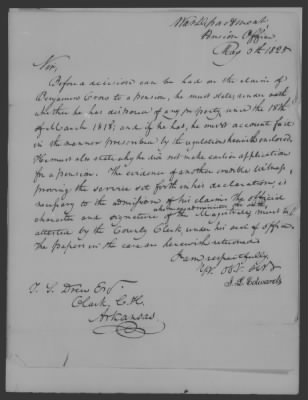 War Department,
Pension Office
May 5th 1828
Sir,
Before a decision can be had on the claim of
Benjamin Cross to a pension, he must state, under oath
whether he has disposed of any property since the 18th
of March 1818; and if he has, he must account for it
in the manner prescribed by the regulations herewith enclosed.
He must also state why he did not make earlier application
for a pension. The evidence of another credible witness,
proving the service set forth in his declaration, is
necessary to the admission of his claim. The official
character and signature of the Magistrate, who administered the oath, must be
attested by the County Clerk under his seal of office.
The papers in the case are herewith returned
I am respectfully,
Yr. Obt. Servt
J. L. Edwards
T. S. Drew Esqr
Clark C. H.
Arkansas